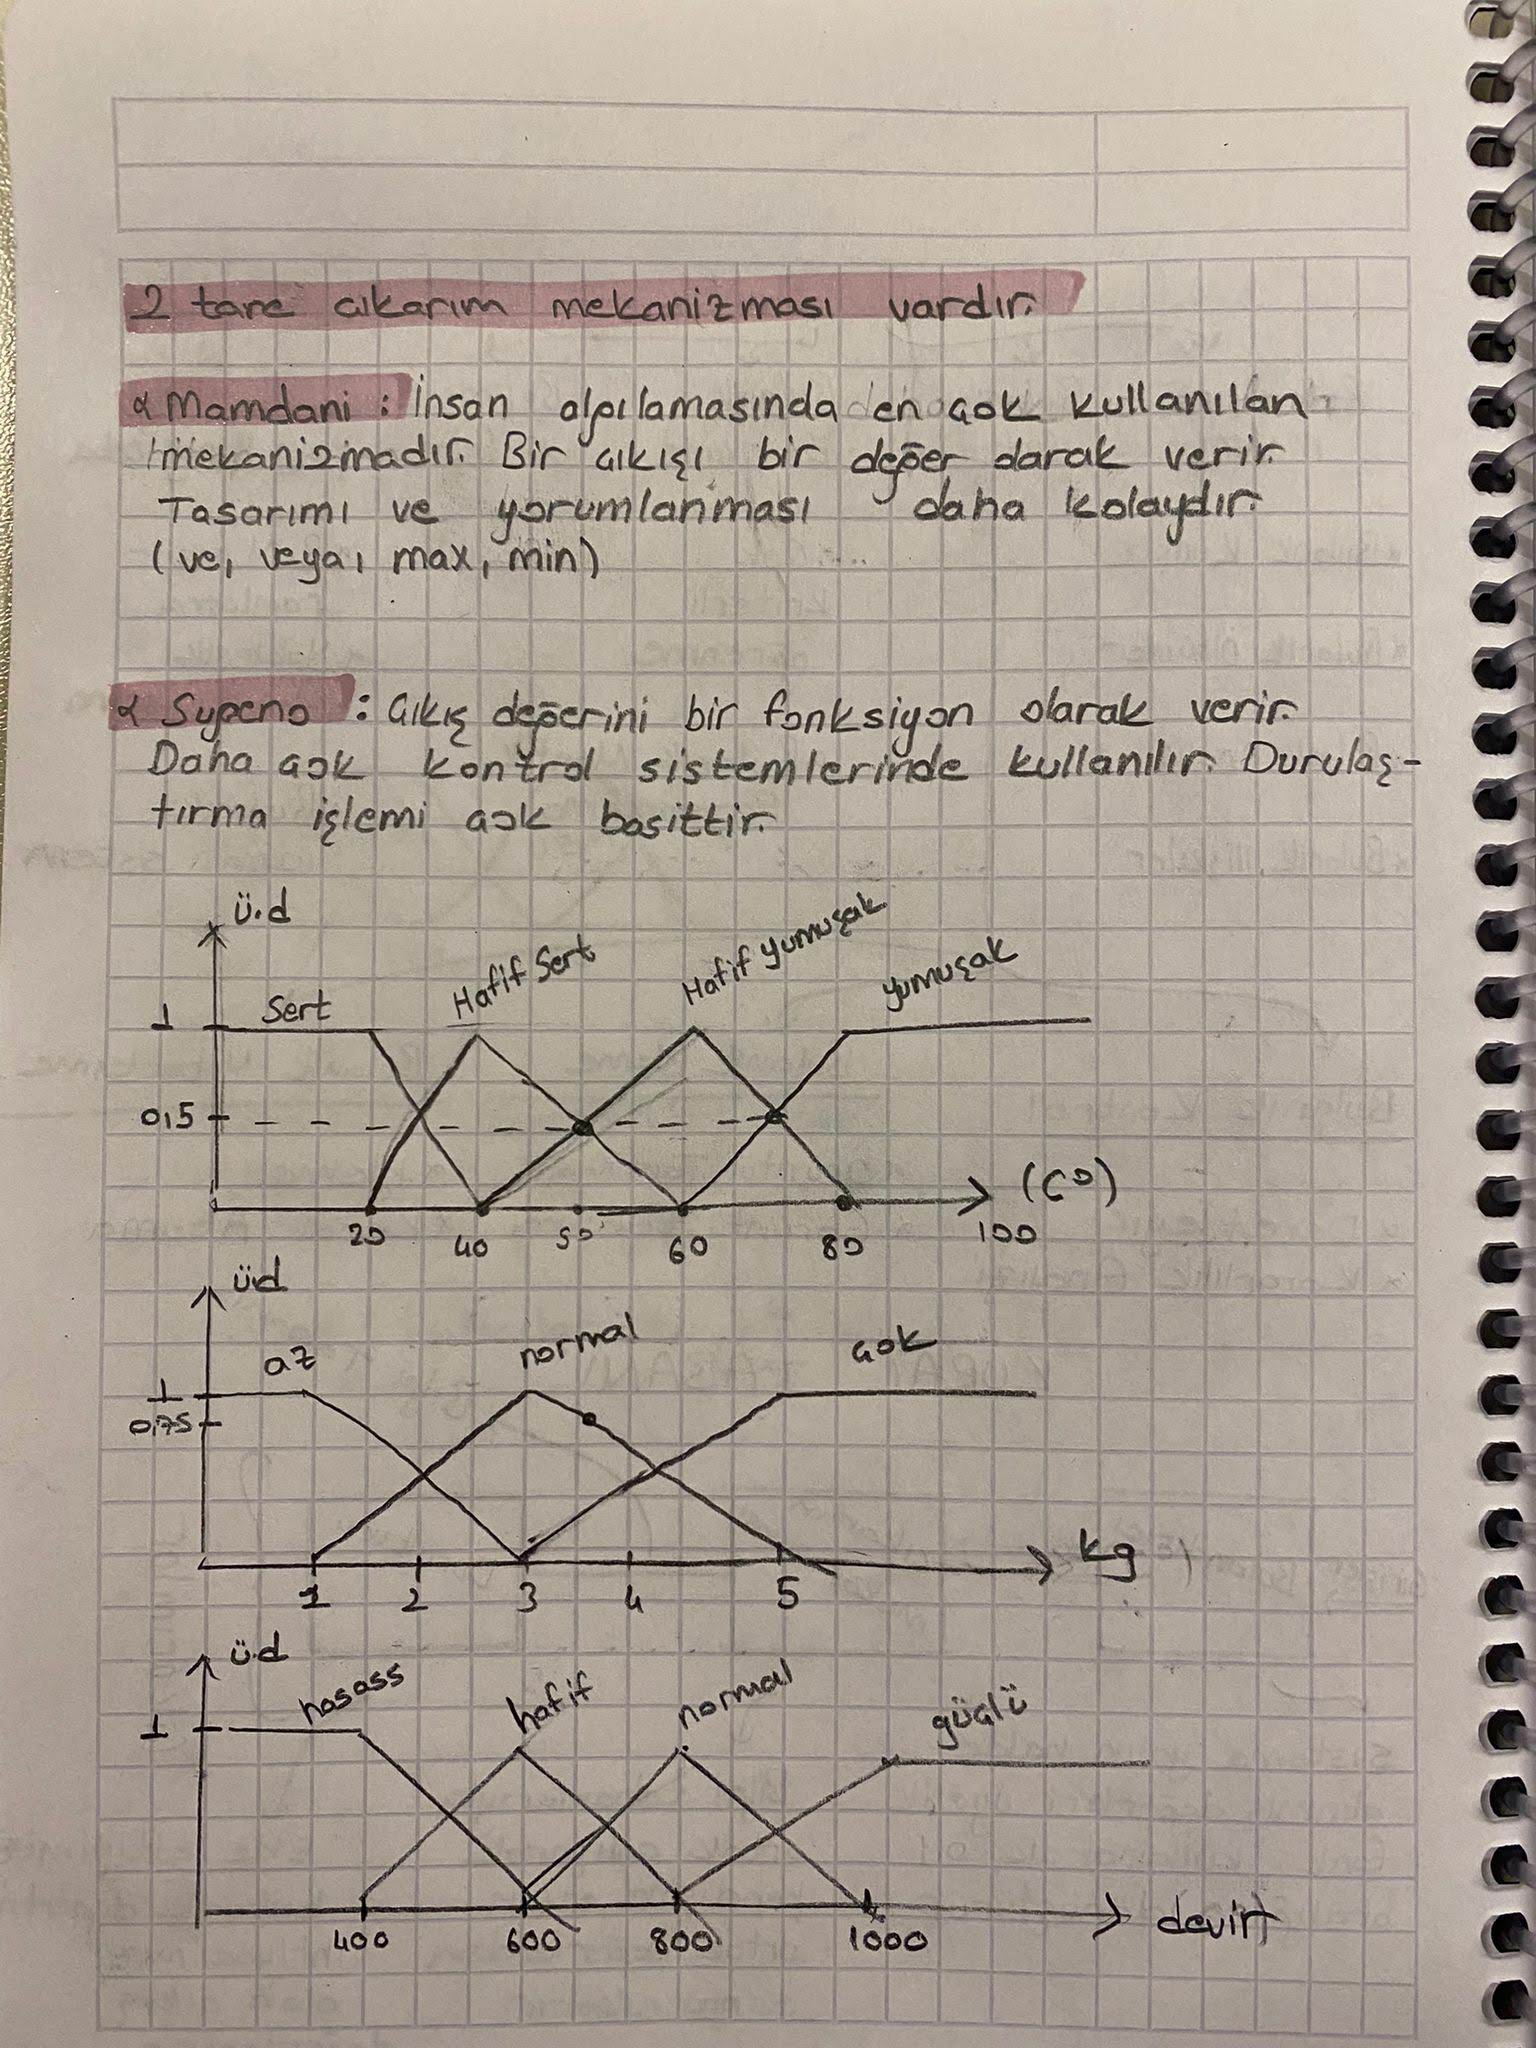 2 tane çıkarım mekanizması vardır.
α Mamdani : İnsan algılamasında en çok kullanılan
mekanizmadır. Bir çıkışı bir değer olarak verir.
Tasarımı ve yorumlanması daha kolaydır.
(ve, veya, max, min)
α Sugeno : Çıkış değerini bir fonksiyon olarak verir.
Daha çok kontrol sistemlerinde kullanılır. Durulaş-
tırma işlemi çok basittir.
ü.d
Sert Hafif Sert Hafif yumuşak yumuşak
1
0,5
(C°)
20 40 50 60 80 100
ü.d
az normal çok
1
0,75
kg
1 2 3 4 5
ü.d
hasass hafif normal güçlü
1
400 600 800 1000 devir